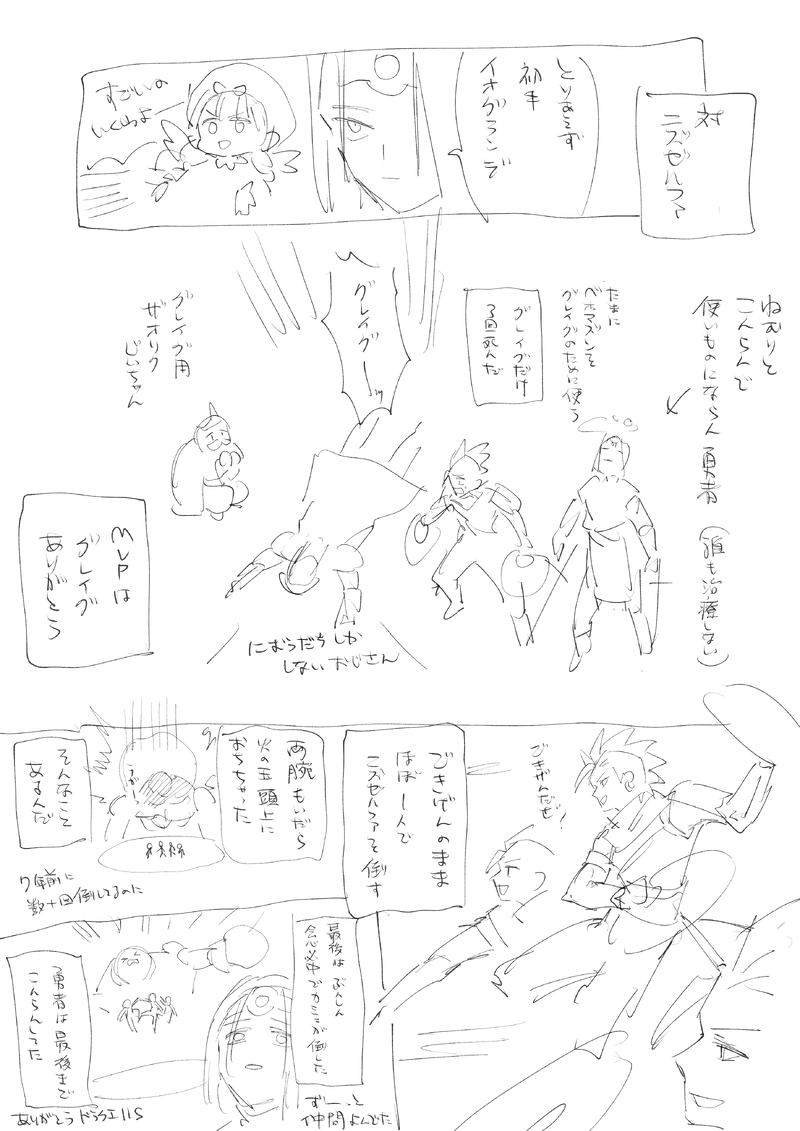 対
ニズゼルファ
とりあえず
初手
イオグランデ
すごいの
いくわよー
ねむりと
こんらんで
使いものにならん勇者(誰も治療しない)
たまに
ベホマズンを
グレイグのために使う
グレイグだけ
3回死んだ
グレイグーーッ
グレイグ用
ザオリク
じいちゃん
におうだちしか
しないおじさん
MVPは
グレイグ
ありがとう
ごきげんだぜ?
ごきげんのまま
ほぼ一人で
ニズゼルファを倒す
両腕もいだら
火の玉頭上に
おちちゃった
そんなこと
あるんだ
7年前に
数十回倒してるのに
最後は ぶんしん
会心必中でカミュが倒した
ずーっと
仲間よんでた
勇者は最後まで
こんらんしてた
ありがとうドラクエ11S